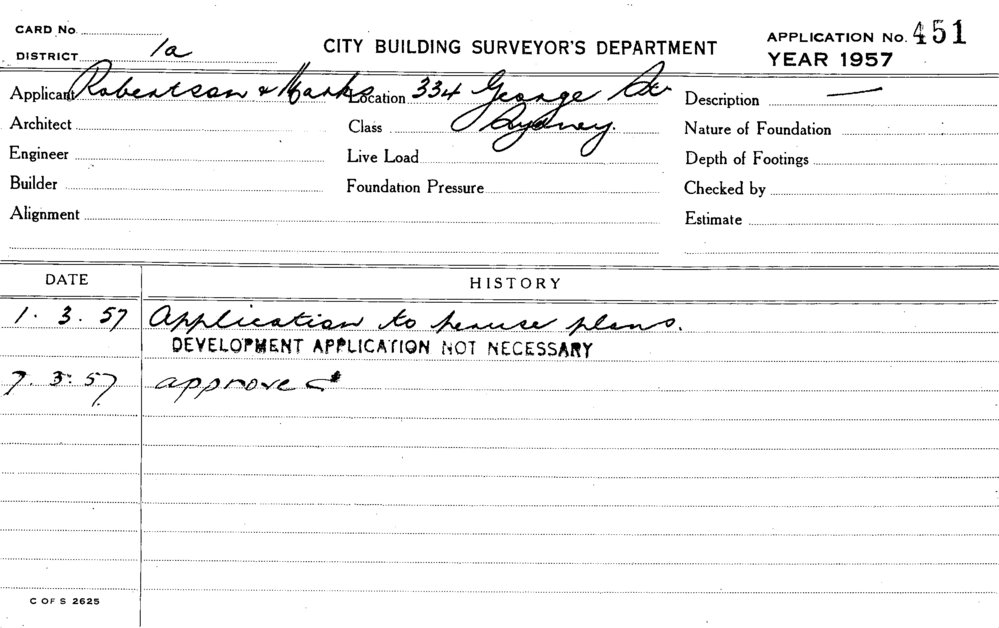 CARD No.
DISTRICT 1a
CITY BUILDING SURVEYOR'S DEPARTMENT
APPLICATION No. 451
YEAR 1957
Applicant Robertson & Marks Location 334 George St Description —
Architect Class Sydney. Nature of Foundation
Engineer Live Load Depth of Footings
Builder Foundation Pressure Checked by
Alignment Estimate
DATE HISTORY
1. 3. 57 Application to peruse plans.
DEVELOPMENT APPLICATION NOT NECESSARY
7. 3. 57 approved
C OF S 2625